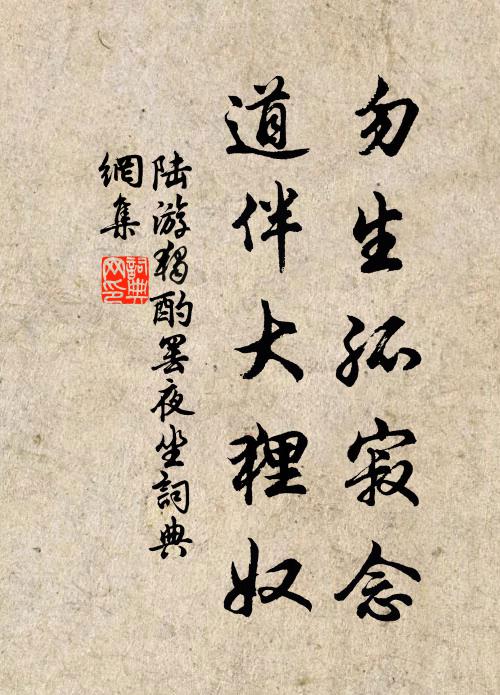 勿生孤寂念
道伴大狸奴
陆游独酌罢夜坐詞典
網集
詞典
网印